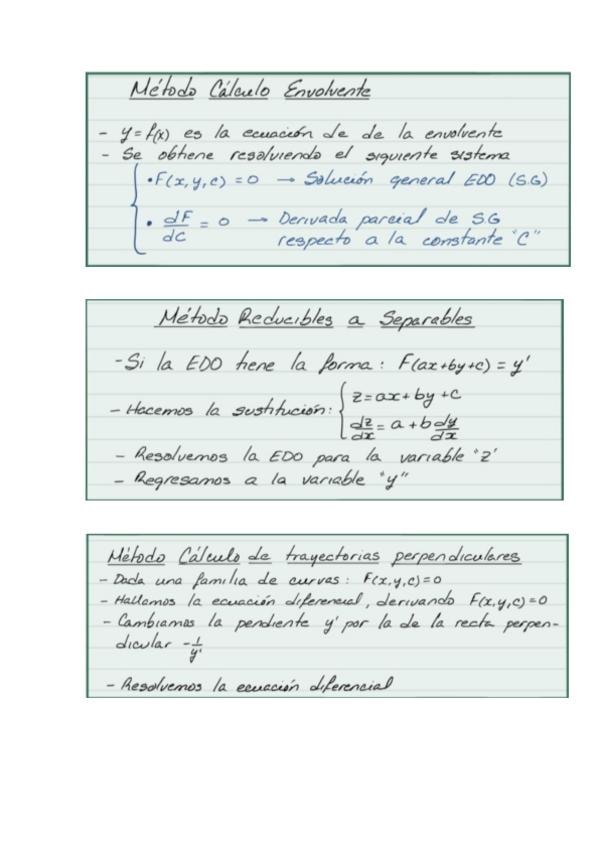 Método Cálculo Envolvente
- y=f(x) es la ecuación de de la envolvente
- Se obtiene resolviendo el siguiente sistema
• F(x,y,c)=0 → Solución general EDO (S.G)
• dF/dc = 0 → Derivada parcial de S.G
respecto a la constante "C"
Método Reducibles a Separables
- Si la EDO tiene la forma: F(ax+by+c) = y'
- Hacemos la sustitución: { z=ax+by+c
dz/dx = a + b dy/dx
- Resolvemos la EDO para la variable "z'
- Regresamos a la variable "y"
Método Cálculo de trayectorias perpendiculares
- Dada una familia de curvas: F(x,y,c)=0
- Hallamos la ecuación diferencial, derivando F(x,y,c)=0
- Cambiamos la pendiente y' por la de la recta perpen-
dicular -1/y'
- Resolvemos la ecuación diferencial